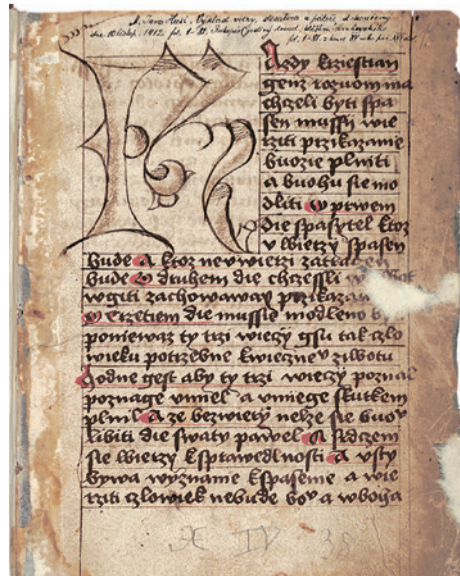 M. Jana Husi, Výklad víry, desatera a páteře, dokončený
K
Azdy krziestian
genz rozvom ma
chczeli byti spa
sen mussy wie
rziti przikazanie
buozie plniti
a buohu sie mo
dliti O prwem
die spasytel ktoz
v wierzy spasen
bude A ktoz newierzi zatraczen
bude O druhem die chczessli w
wgiti zachowaway przikazanie
O trzetiem die mussie modleno
poniewaz ty trzi wieczy gsu tak czlo
wieku potrzebne kwieczne v ziwotu
hodne gest aby ty trzi wieczy poznal
poznage vmiel a vmiege skutkem
plnil A ze bezwiery nelze sie buov
libiti die swaty pawel A srdczem
sie wierzy ksprawedlnosti A vsty
bywa wyznanie kspasenie a wie
rziti czlowiek nebude bov a wboha
X IV 38